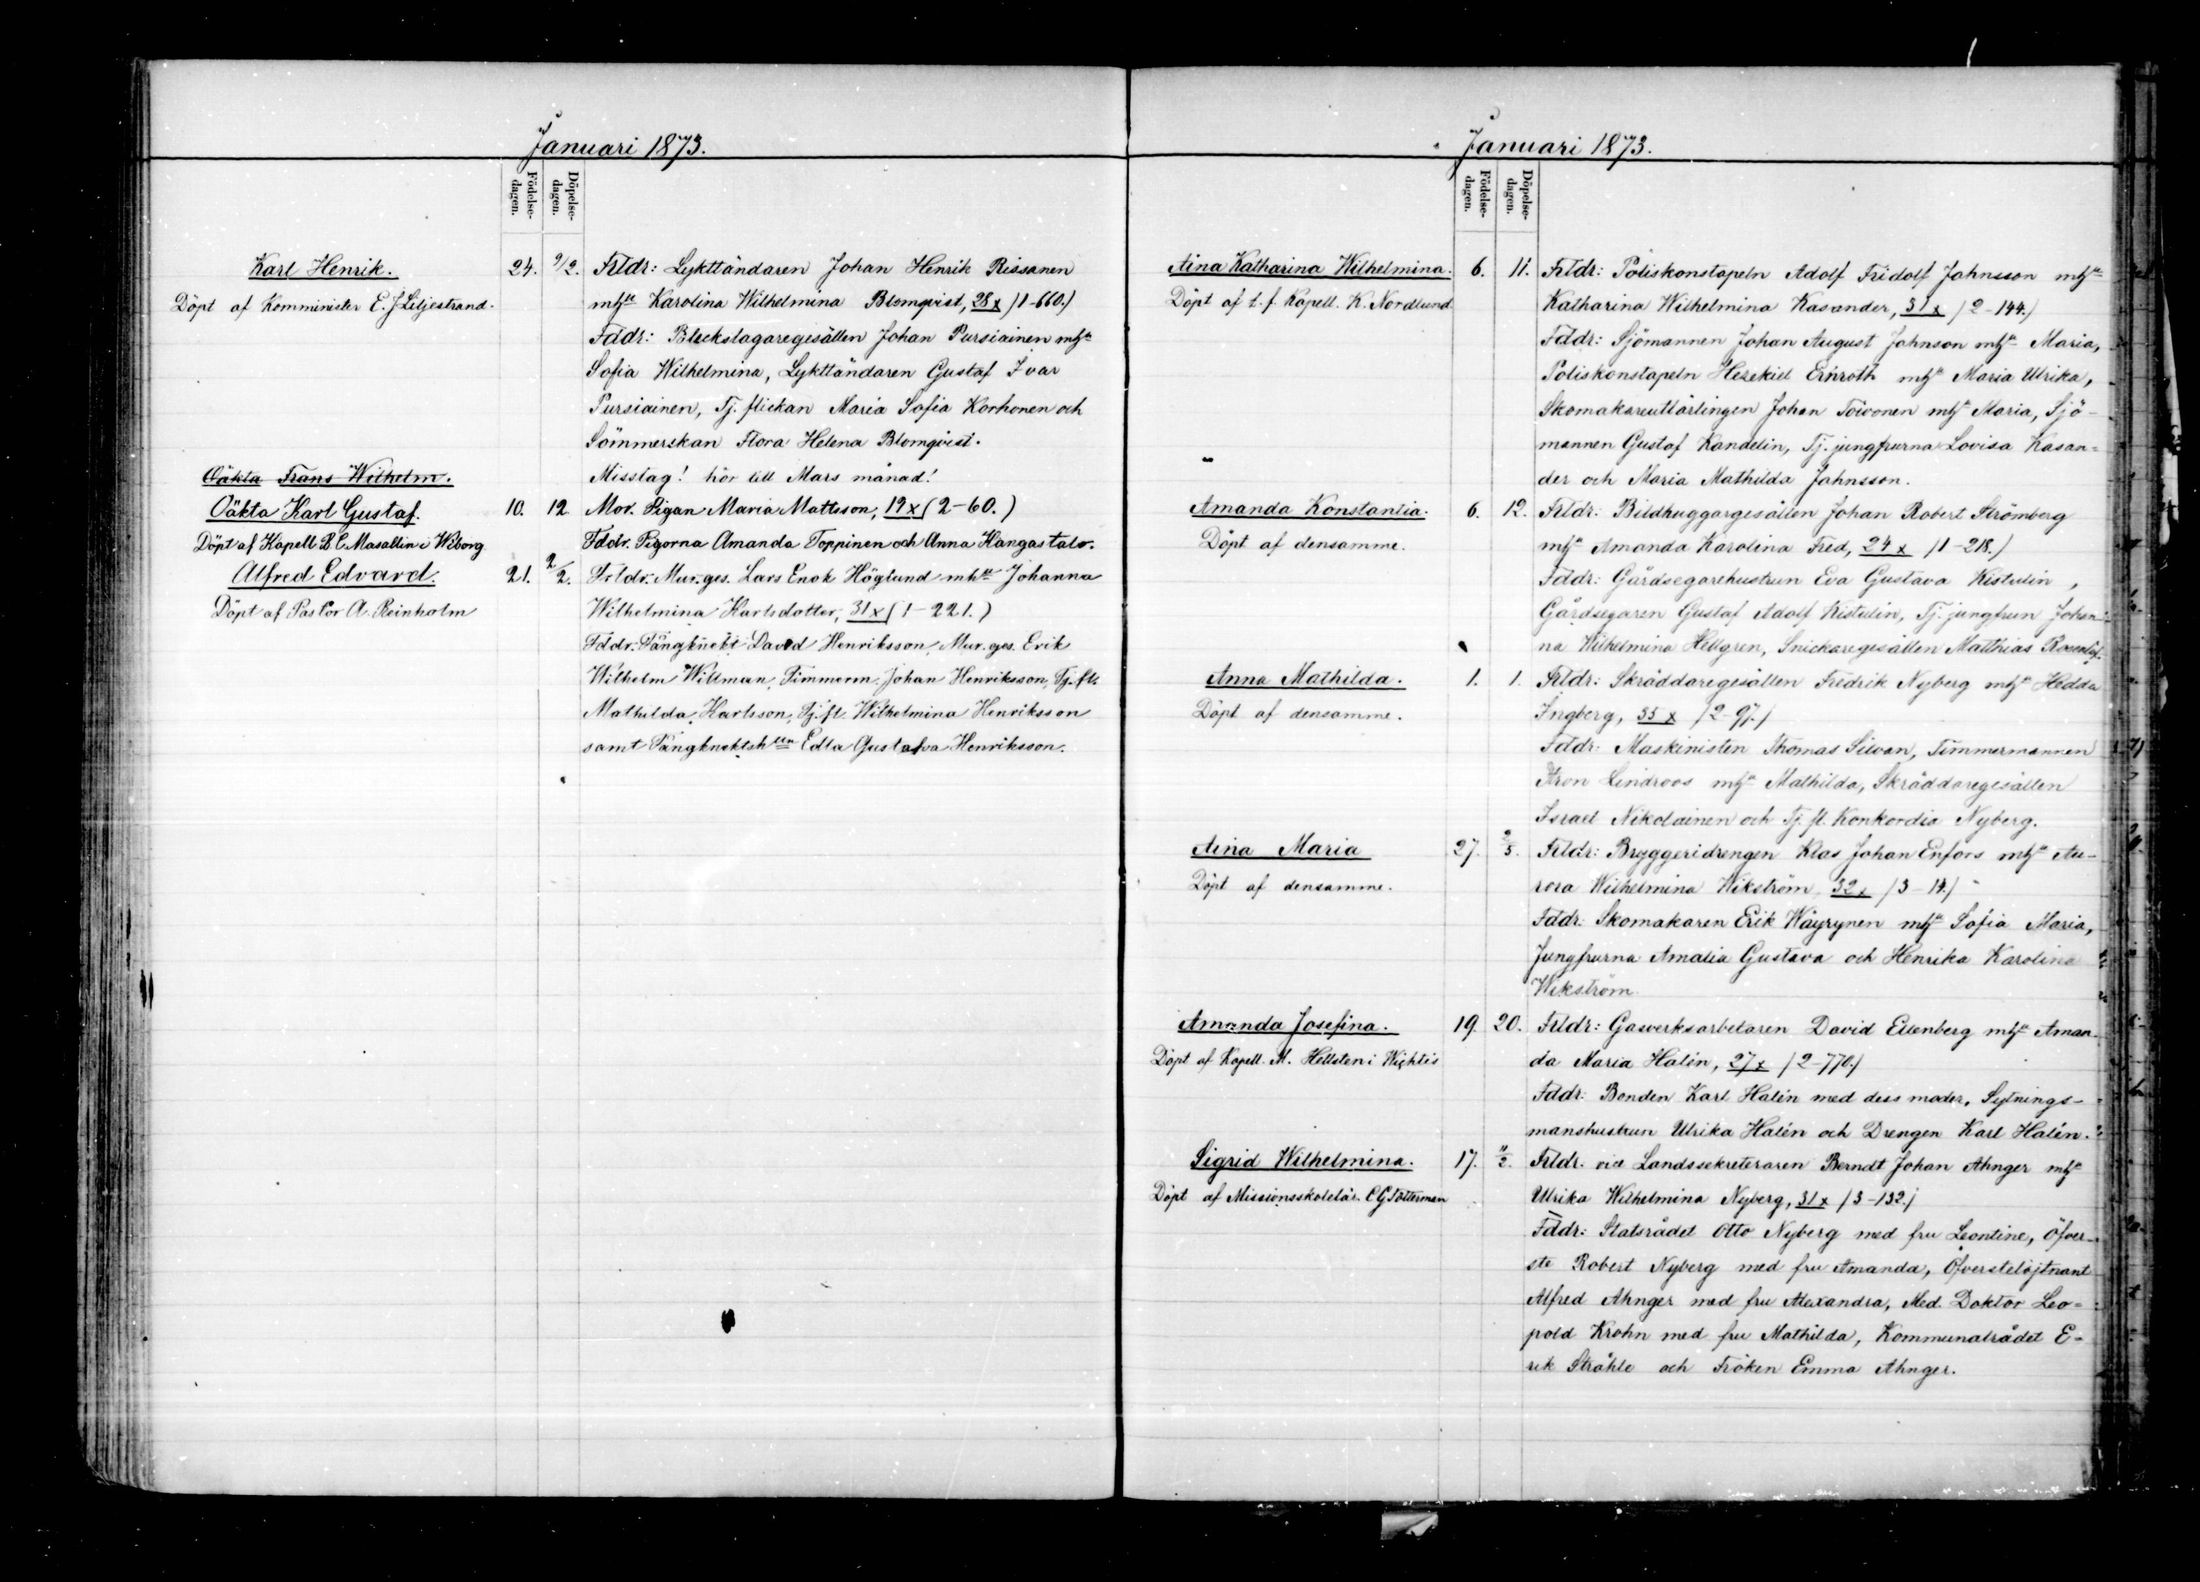 Januari 1873.
Födelse-
dagen.
Döpelse-
dagen.
Karl Henrik. 24. 9/2. Frldr: Lykttändaren Johan Henrik Rissanen
Döpt af Komminister E. J. Liljestrand. mhu Karolina Wilhelmina Blomqvist, 28 x /1-660./
Fddr: Bleckslagaregesällen Johan Pursiainen mhu
Sofia Wilhelmina, Lykttändaren Gustaf Ivar
Pursiainen, Tj. flickan Maria Sofia Korhonen och
Sömmerskan Flora Helena Blomqvist.
Oäkta Frans Wilhelm. Misstag! hör till Mars månad!
Oäkta Karl Gustaf. 10. 12 Mor. Pigan Maria Mattsson, 19 x (2-60.)
Döpt af Kapell. B. C. Masallin i Wiborg Fddr. Pigorna Amanda Toppinen och Anna Kangastalo.
Alfred Edvard. 21. 2/2. Frldr. Mur. ges. Lars Enok Höglund mhu Johanna
Döpt af Pastor A. Reinholm Wilhelmina Karlsdotter, 31 x (1-221.)
Fddr. Fångknekt David Henriksson, Mur. ges. Erik
Wilhelm Willman, Timmerm. Johan Henriksson, Tj. fl.
Mathilda Karlsson, Tj. fl. Wilhelmina Henriksson
samt Fångknektshun Edla Gustafva Henriksson.
Januari 1873.
Födelse-
dagen.
Döpelse-
dagen.
Aina Katharina Wilhelmina. 6. 11. Frldr: Poliskonstapeln Adolf Fridolf Johnsson mhu
Döpt af t. f. Kapell. K. Nordlund Katharina Wilhelmina Kasander, 31 x /2-144./
Fddr: Sjömannen Johan August Johnson mhu Maria,
Poliskonstapeln Hesekiel Ernroth mhu Maria Ulrika,
Skomakareutlärlingen Johan Toivonen mhu Maria, Sjö-
mannen Gustaf Kandelin, Tj. jungfrurna Lovisa Kasan-
der och Maria Mathilda Johnsson.
Amanda Konstantia. 6. 12. Frldr: Bildhuggargesällen Johan Robert Strömberg
Döpt af densamme. mhu Amanda Karolina Fred, 24 x /1-218./
Fddr: Gårdsegarehustrun Eva Gustava Kistulin,
Gårdsegaren Gustaf Adolf Kistulin, Tj. jungfrun Johan-
na Wilhelmina Hellgren, Snickaregesällen Matthias Rosenlöf.
Anna Mathilda. 1. 1. Frldr: Skräddaregesällen Fredrik Nyberg mhu Hedda
Döpt af densamme. Ingberg, 35 x /2-97./
Fddr: Maskinisten Thomas Silvan, Timmermannen
Aron Lindroos mhu Mathilda, Skräddaregesällen
Israel Nikolainen och Tj. fl. Konkordia Nyberg.
Aina Maria 27. 2/5. Frldr: Bryggeridrengen Klas Johan Enfors mhu Au-
Döpt af densamme. rora Wilhelmina Wikström 32 x /3-14./
Fddr: Skomakaren Erik Wäyrynen mhu Sofia Maria,
Jungfrurna Amalia Gustava och Henrika Karolina
Wikström.
Amanda Josefina. 19. 20. Frldr: Gasverksarbetaren David Eilenberg mhu Aman-
Döpt af Kapell. M. Hellsten i Wichtis da Maria Halén, 27 x /2-770./
Fddr: Bonden Karl Halén med dess moder, Sytnings-
manshustrun Ulrika Halén och Drengen Karl Halén.
Sigrid Wilhelmina. 17. 11/2. Frldr. vice Landssekreteraren Berndt Johan Ahnger mhu
Döpt af Missionsskolelär. C G Totterman Ulrika Wilhelmina Nyberg, 31 x /3-132./
Fddr: Statsrådet Otto Nyberg med fru Leontine, Öfver-
ste Robert Nyberg med fru Amanda, Öfverstelöjtnant
Alfred Ahnger med fru Alexandra, Med. Doktor Leo-
pold Krohn med fru Mathilda, Kommunalrådet E-
rik Stråhle och Fröken Emma Ahnger.